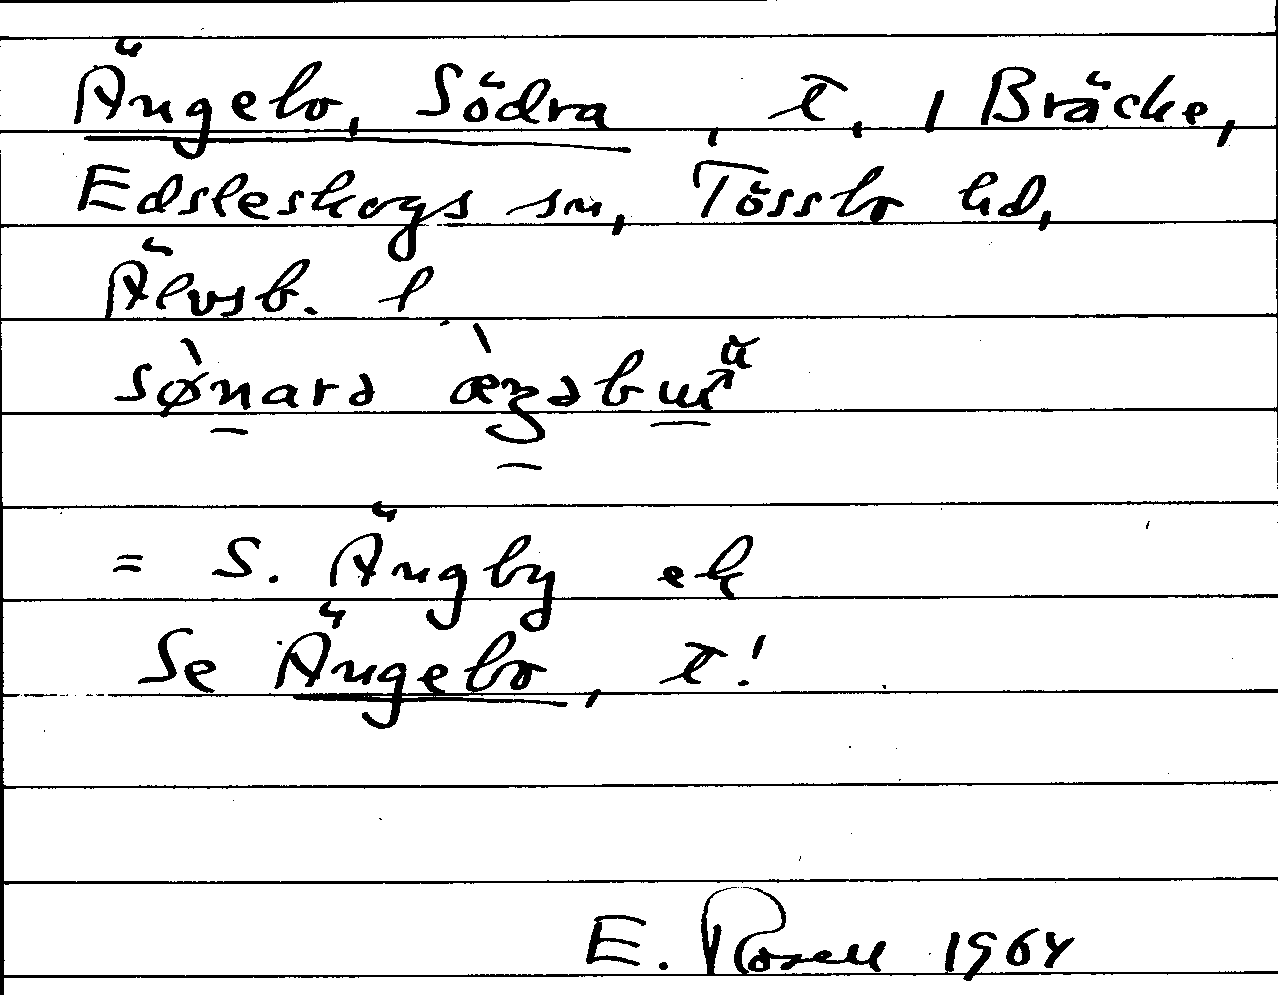 Ängebo, Södra, t. 1 Bräcke,
Edsleskogs sn, Tössbo hd,
Älvsb. l
= S. Ängby ek
Se Ängebo, t!
E. Rosell 1964